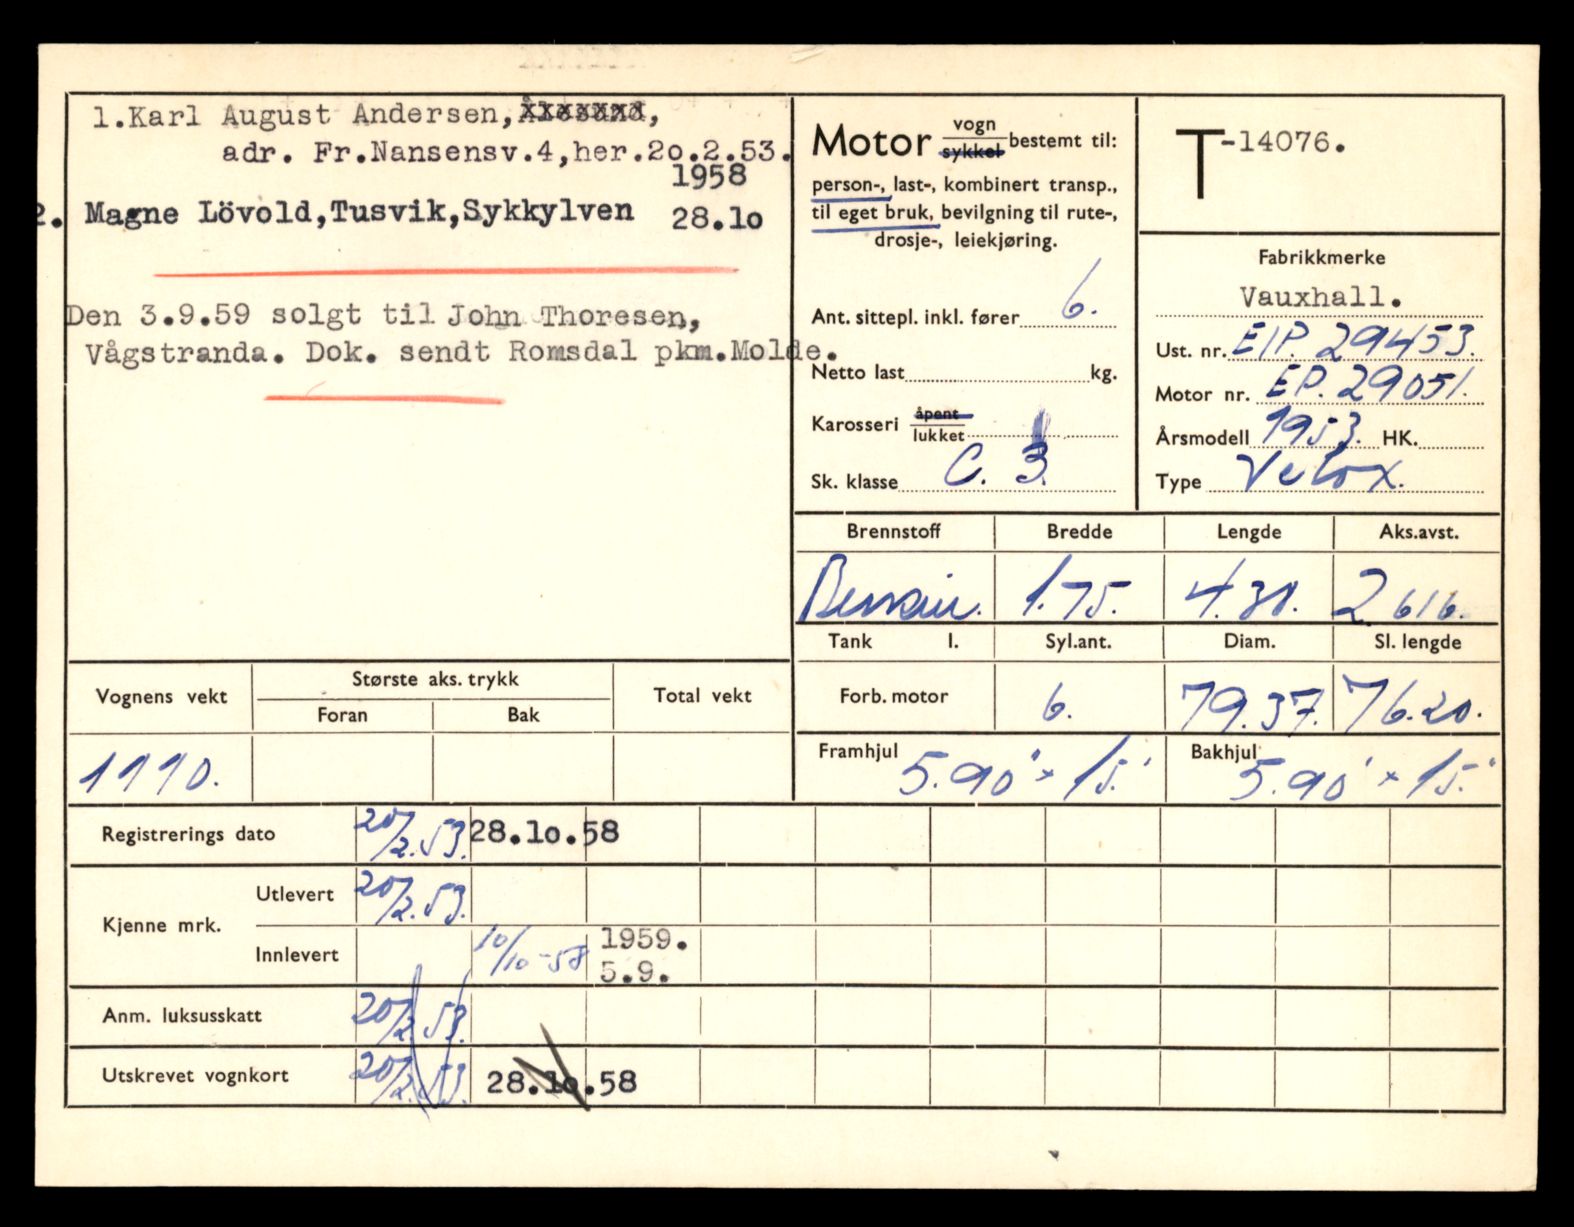 1.Karl August Andersen,Ålesund,
adr. Fr.Nansensv.4,her.2o.2.53.
1958
2. Magne Lövold,Tusvik,Sykkylven 28.1o
Den 3.9.59 solgt til John Thoresen,
Vågstranda. Dok. sendt Romsdal pkm.Molde.
Motor vogn sykkel bestemt til:
person-, last-, kombinert transp.,
til eget bruk, bevilgning til rute-,
drosje-, leiekjøring.
Ant. sittepl. inkl. fører 6.
Netto last kg.
Karosseri åpent lukket
Sk. klasse C. 3.
T-14076.
Fabrikkmerke
Vauxhall.
Ust. nr. EIP. 29453.
Motor nr. EP. 29051.
Årsmodell 1953. HK.
Type Velox.
Brennstoff Bredde Lengde Aks.avst.
Bensin. 1.75. 4.38. 2.616.
Tank l. Syl.ant. Diam. Sl. lengde
Forb. motor 6. 79.37. 76.20.
Framhjul 5.90" x 15" Bakhjul 5.90" x 15"
Vognens vekt Største aks. trykk Total vekt
Foran Bak
1110.
Registrerings dato 20/2.53. 28.1o.58
Kjenne mrk. Utlevert 20/2.53.
Innlevert 10/10-58 1959.
5.9.
Anm. luksusskatt 20/2.53.
Utskrevet vognkort 20/2.53. 28.1o.58